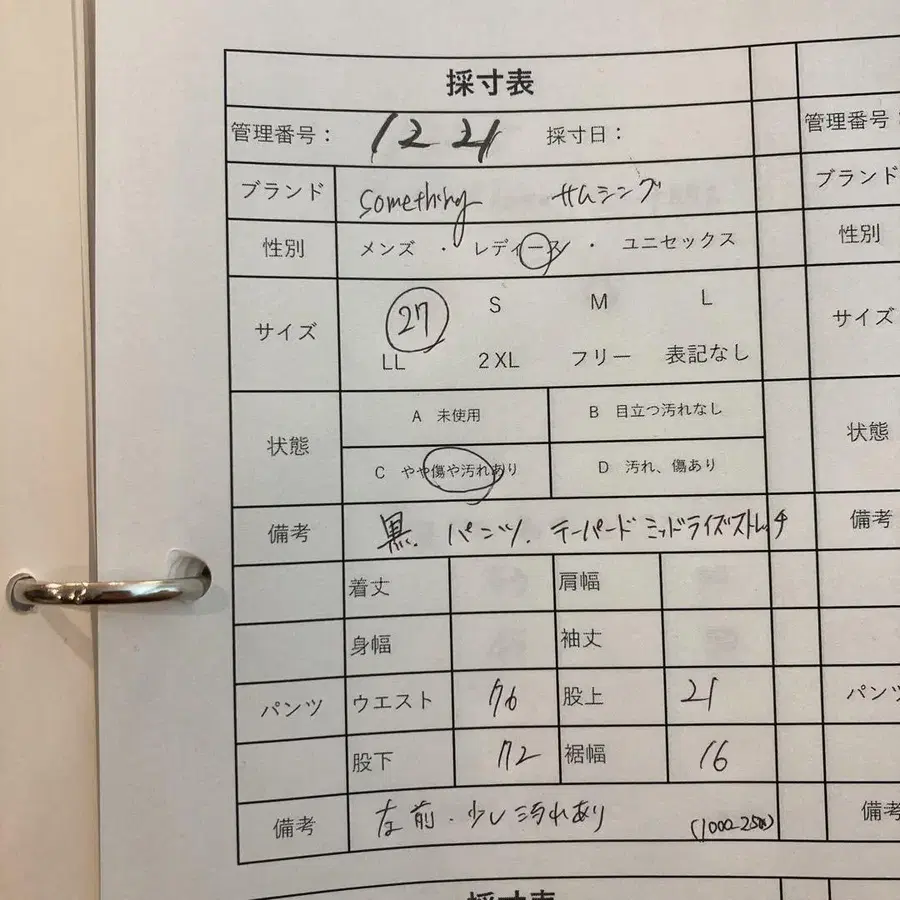 採寸表
管理番号： 1221 採寸日：
ブランド something サムシング
性別 メンズ ・ レディース ・ ユニセックス
サイズ 27 S M L
LL 2XL フリー 表記なし
状態 A 未使用 B 目立つ汚れなし
C やや傷や汚れあり D 汚れ、傷あり
備考 黒、パンツ、テーパード ミッドライズストレッチ
着丈 肩幅
身幅 袖丈
パンツ ウエスト 76 股上 21
股下 72 裾幅 16
備考 左前・少し汚れあり (1000-2500)
採寸表
管理番号
ブランド
性別
サイズ
状態
備考
パンツ
備考